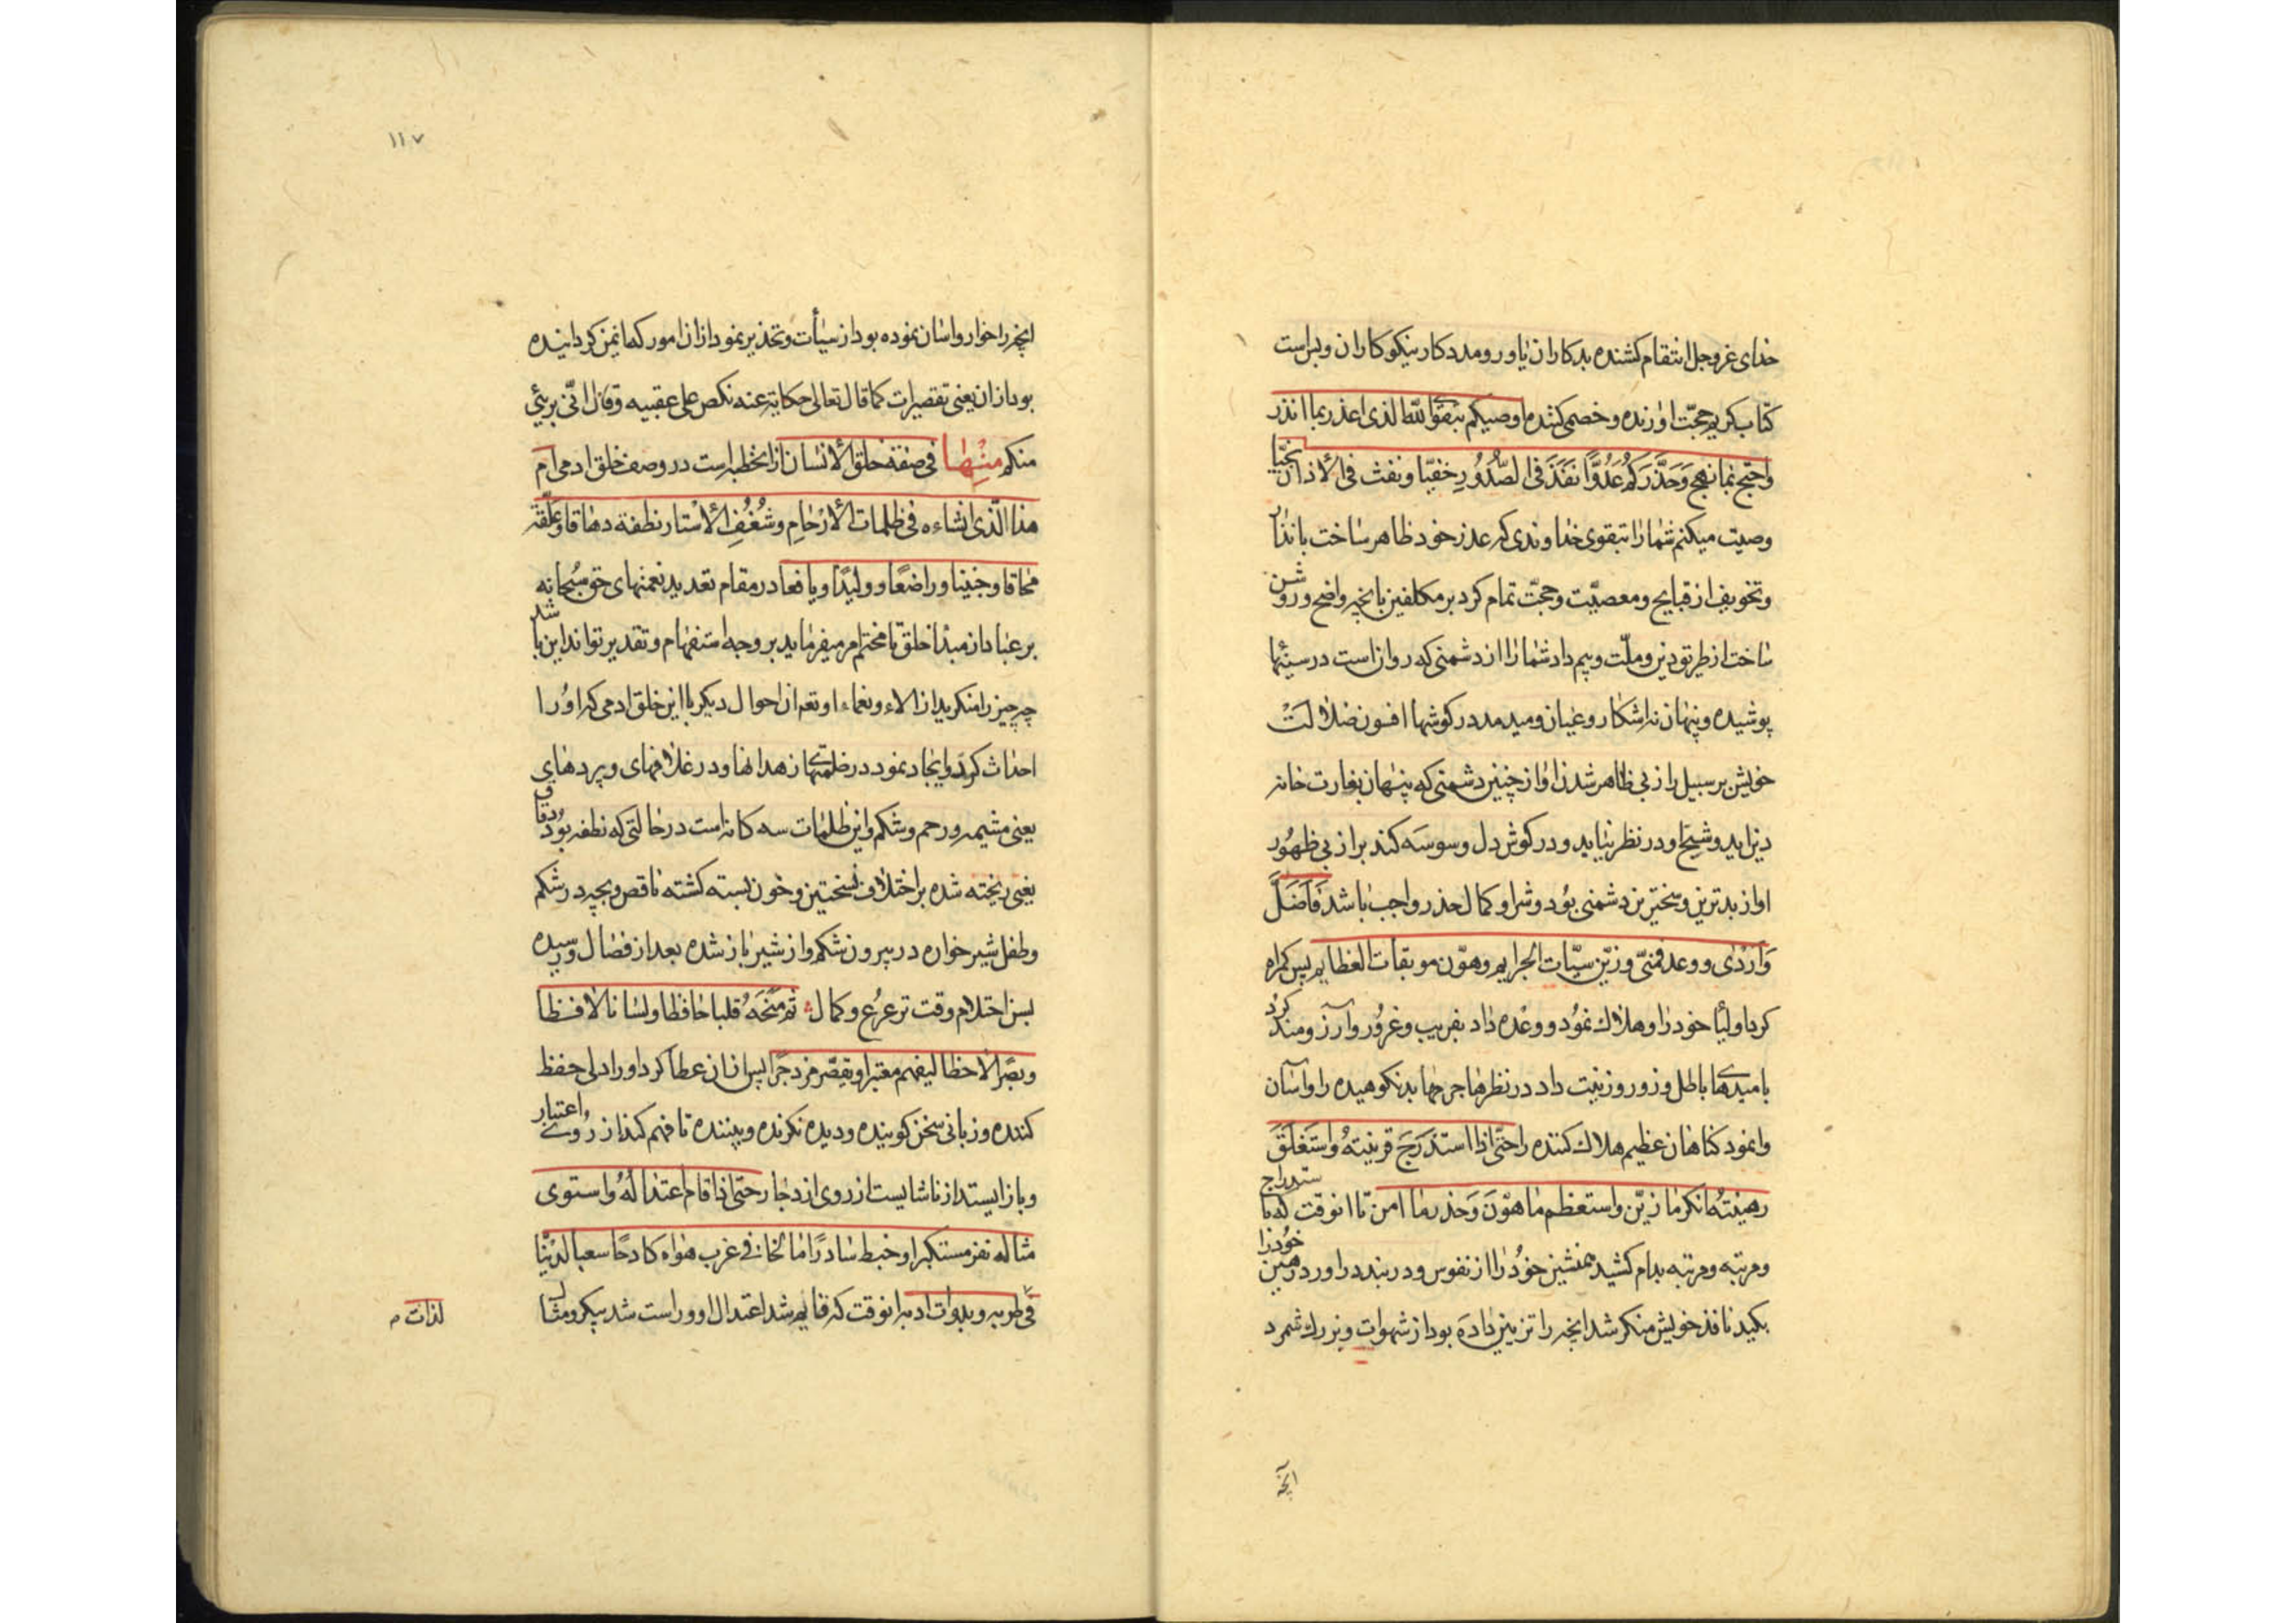 خدای عزوجل انتقام کشنده بدکاران یاور و مددکار نیکوکاران و بس است
کتاب کریم حجّت اورنده و خصمی کننده اوصیکم بتقوا لله الذی اعذر بما انذر
واحتج بما نهج وَحَذَّرَکُم عَدُوًّا نَفَذَ فی الصُّدُورِ خفیّا ونفث فی الأذان نجیّا
وصیت میکنم شما را بتقوی خداوندی که عذر خود ظاهر ساخت بانذار
و تخویف از قبایح و معصیّت و حجّت تمام کرد بر مکلفین بانچه واضح و روشن
ساخت از طریق دین و ملّت و بیم داد شما را از دشمنی که روان است در سینها
پوشیده و پنهان نه اشکار و عیان و میدمد در کوشها افسون ضلالت
خویش بر سبیل راز بی ظاهر شدن اواز چنین دشمنی که پنهان بغارت خانه
دین اید و شبح او در نظر نیاید و در کوش دل وسوسه کند براز بی ظهور
اواز بدترین و سختترین دشمنی بود و شر او کمال حذر واجب باشد فَاَضَلَّ
وَاَرْدٰی و وعد فمنّی و زیّن سیّات الجرایم وهوّن موبقات العظایم پس کمراه
کرد اولیا خود را و هلاک نمود و وعده داد بفریب و غرور و آرزومند کرد
بامیدهای باطل و زور و زینت داد در نظرها جرمها بد نکوهیده را و اسان
وانمود کناهان عظیم هلاک کننده را حتّی اذا استَدرَجَ قرینتهُ واستَغلَقَ
رهینتهُ انکر ما زیّن واستعظم ما هوّنَ وَحذر ما امن تا انوقت که باستدراج
و مرتبه و مرتبه بدام کشید همنشین خود را از نفوس و در بند در اورد رهین خود را
بکید نافذ خویش منکر شد انچه را تزیین داده بود از شهوات و بزرك شمرد
انچه
۱۱۷
انچه را خوار و اسان نموده بود از سیأت و تحذیر نمود از ان امور که ایمن کردانیده
بود از ان یعنی تقصیرات کما قال تعالی حکایة عنه نکص علی عقبیه وقال انّی بریئ
منکم منها فی صفة خلق الانسان از انخطبه است در وصف خلق ادمی ام
هذا الّذی انشاءه فی ظلمات الأرْحامِ وشُغُفِ الأسْتار نطفة دهاقا وعَلَقَة
محاقا و جنینا و راضعًا و ولیدًا و یافعا در مقام تعدید نعمتهای حق سبحانه
بر عباد از مبدا خلق تا مختتم امر میفرماید بر وجه استفهام و تقدیر تواند این باشد
چه چیز را منکرید از الاء و نعماء او تعم از احوال دیکر با این خلق ادمی که او را
احداث کرد و ایجاد نمود در ظلمتهای زهدانها و در غلافهای و پردهای
یعنی مشیمه و رحم و شکم و این ظلمات سه کانه است در حالتی که نطفه بود دقاق
یعنی ریخته شده بر اختلاف نسختین و خون بسته کشته ناقص و بچه در شکم
و طفل شیر خواره در بیرون شکم و از شیر باز شده بعد از فصال و رسیده
بسن احتلام وقت ترعرُع و کمال ثم مَنَحَهُ قلبا حافظا ولسانا لافظا
وبصَرا لاحظا لیفهم معتبرا ویقصّر مزدجرًا پس از ان عطا کرد او را دلی حفظ
کننده و زبانی سخن کوینده و دیده نکرنده و بیننده تا فهم کند از روی اعتبار
و باز ایستد از ناشایست از روی ازدجار حتّی اذا قام اعتدالُهُ واستوی
مثاله نفر مستکبرا وخبط سادرًا ماتحا فی غرب هواه کادحًا سعیا لدنیا
فی طربه وبدوات اربه تا انوقت که قایم شد اعتدال او و راست شد پیکر و مثال
لذات م